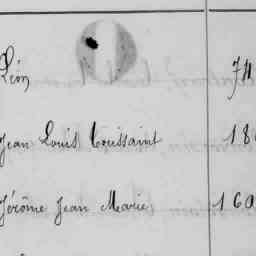 Léon 74
Jean Louis Toussaint 18
Jérôme Jean Marie 160